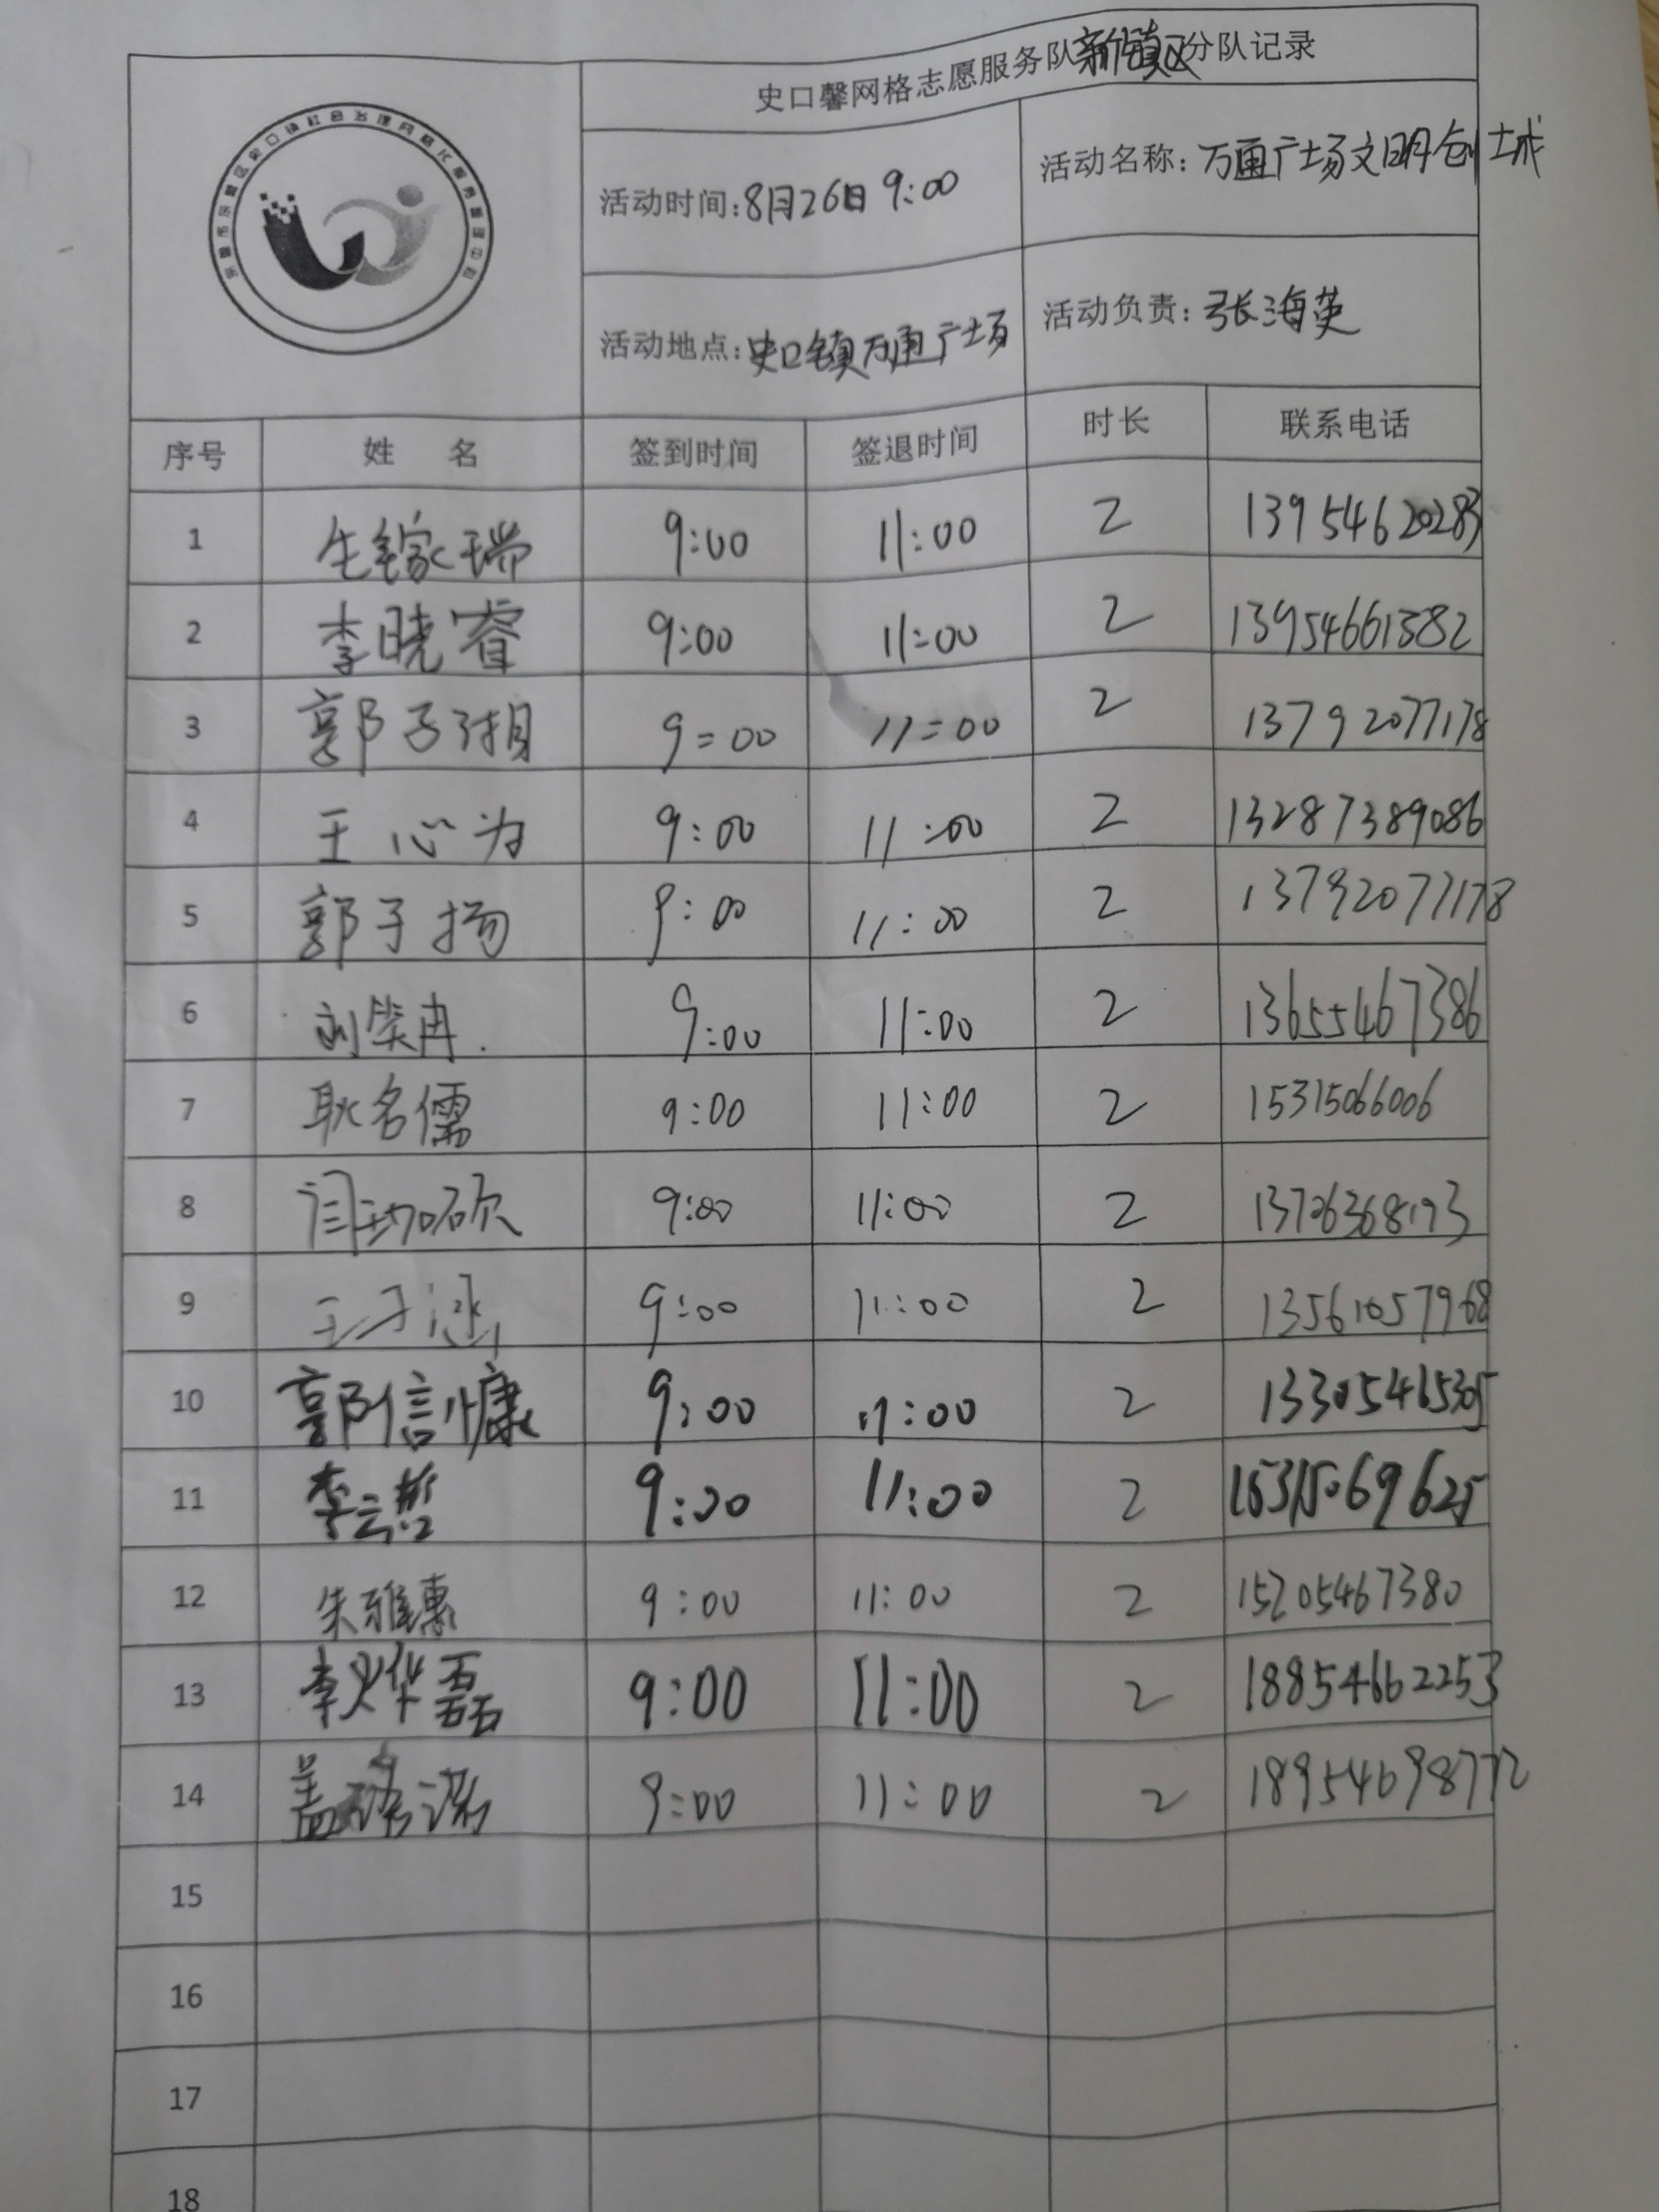 史口馨网格志愿服务队新镇区分队记录
活动时间:8月26日 9:00
活动名称:万通广场文明创城
活动地点:史口镇万通广场
活动负责:张海英
序号 姓 名 签到时间 签退时间 时长 联系电话
1 生镓瑞 9:00 11:00 2 13954620283
2 李晓睿 9:00 11:00 2 13954661382
3 郭子 9:00 11:00 2 13792077178
4 王心为 9:00 11:00 2 13287389086
5 郭子扬 9:00 11:00 2 13792077178
6 刘笑冉 9:00 11:00 2 13655467386
7 耿名儒 9:00 11:00 2 15315066006
8 9:00 11:00 2
9 王子涵 9:00 11:00 2 13561057968
10 郭信慷 9:00 11:00 2 13305465305
11 李云哲 9:00 11:00 2 15315069625
12 朱雅惠 9:00 11:00 2 15205467380
13 李烨磊 9:00 11:00 2 18854662253
14 盖 诺 9:00 11:00 2 18954698772
15
16
17
18